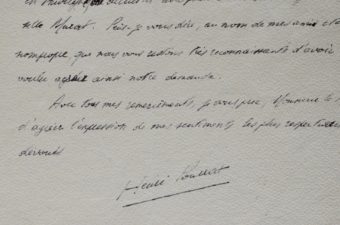 salle Murat. Puis-je vous dire, au nom de mes amis et
nom propre, que nous vous restons très reconnaissants d'avoir
voulu agréer ainsi notre demande.
Avec tous mes remerciements, je vous prie, Monsieur le
d'agréer l'expression de mes sentiments les plus respectueu
dévoués
Henri Pourrat